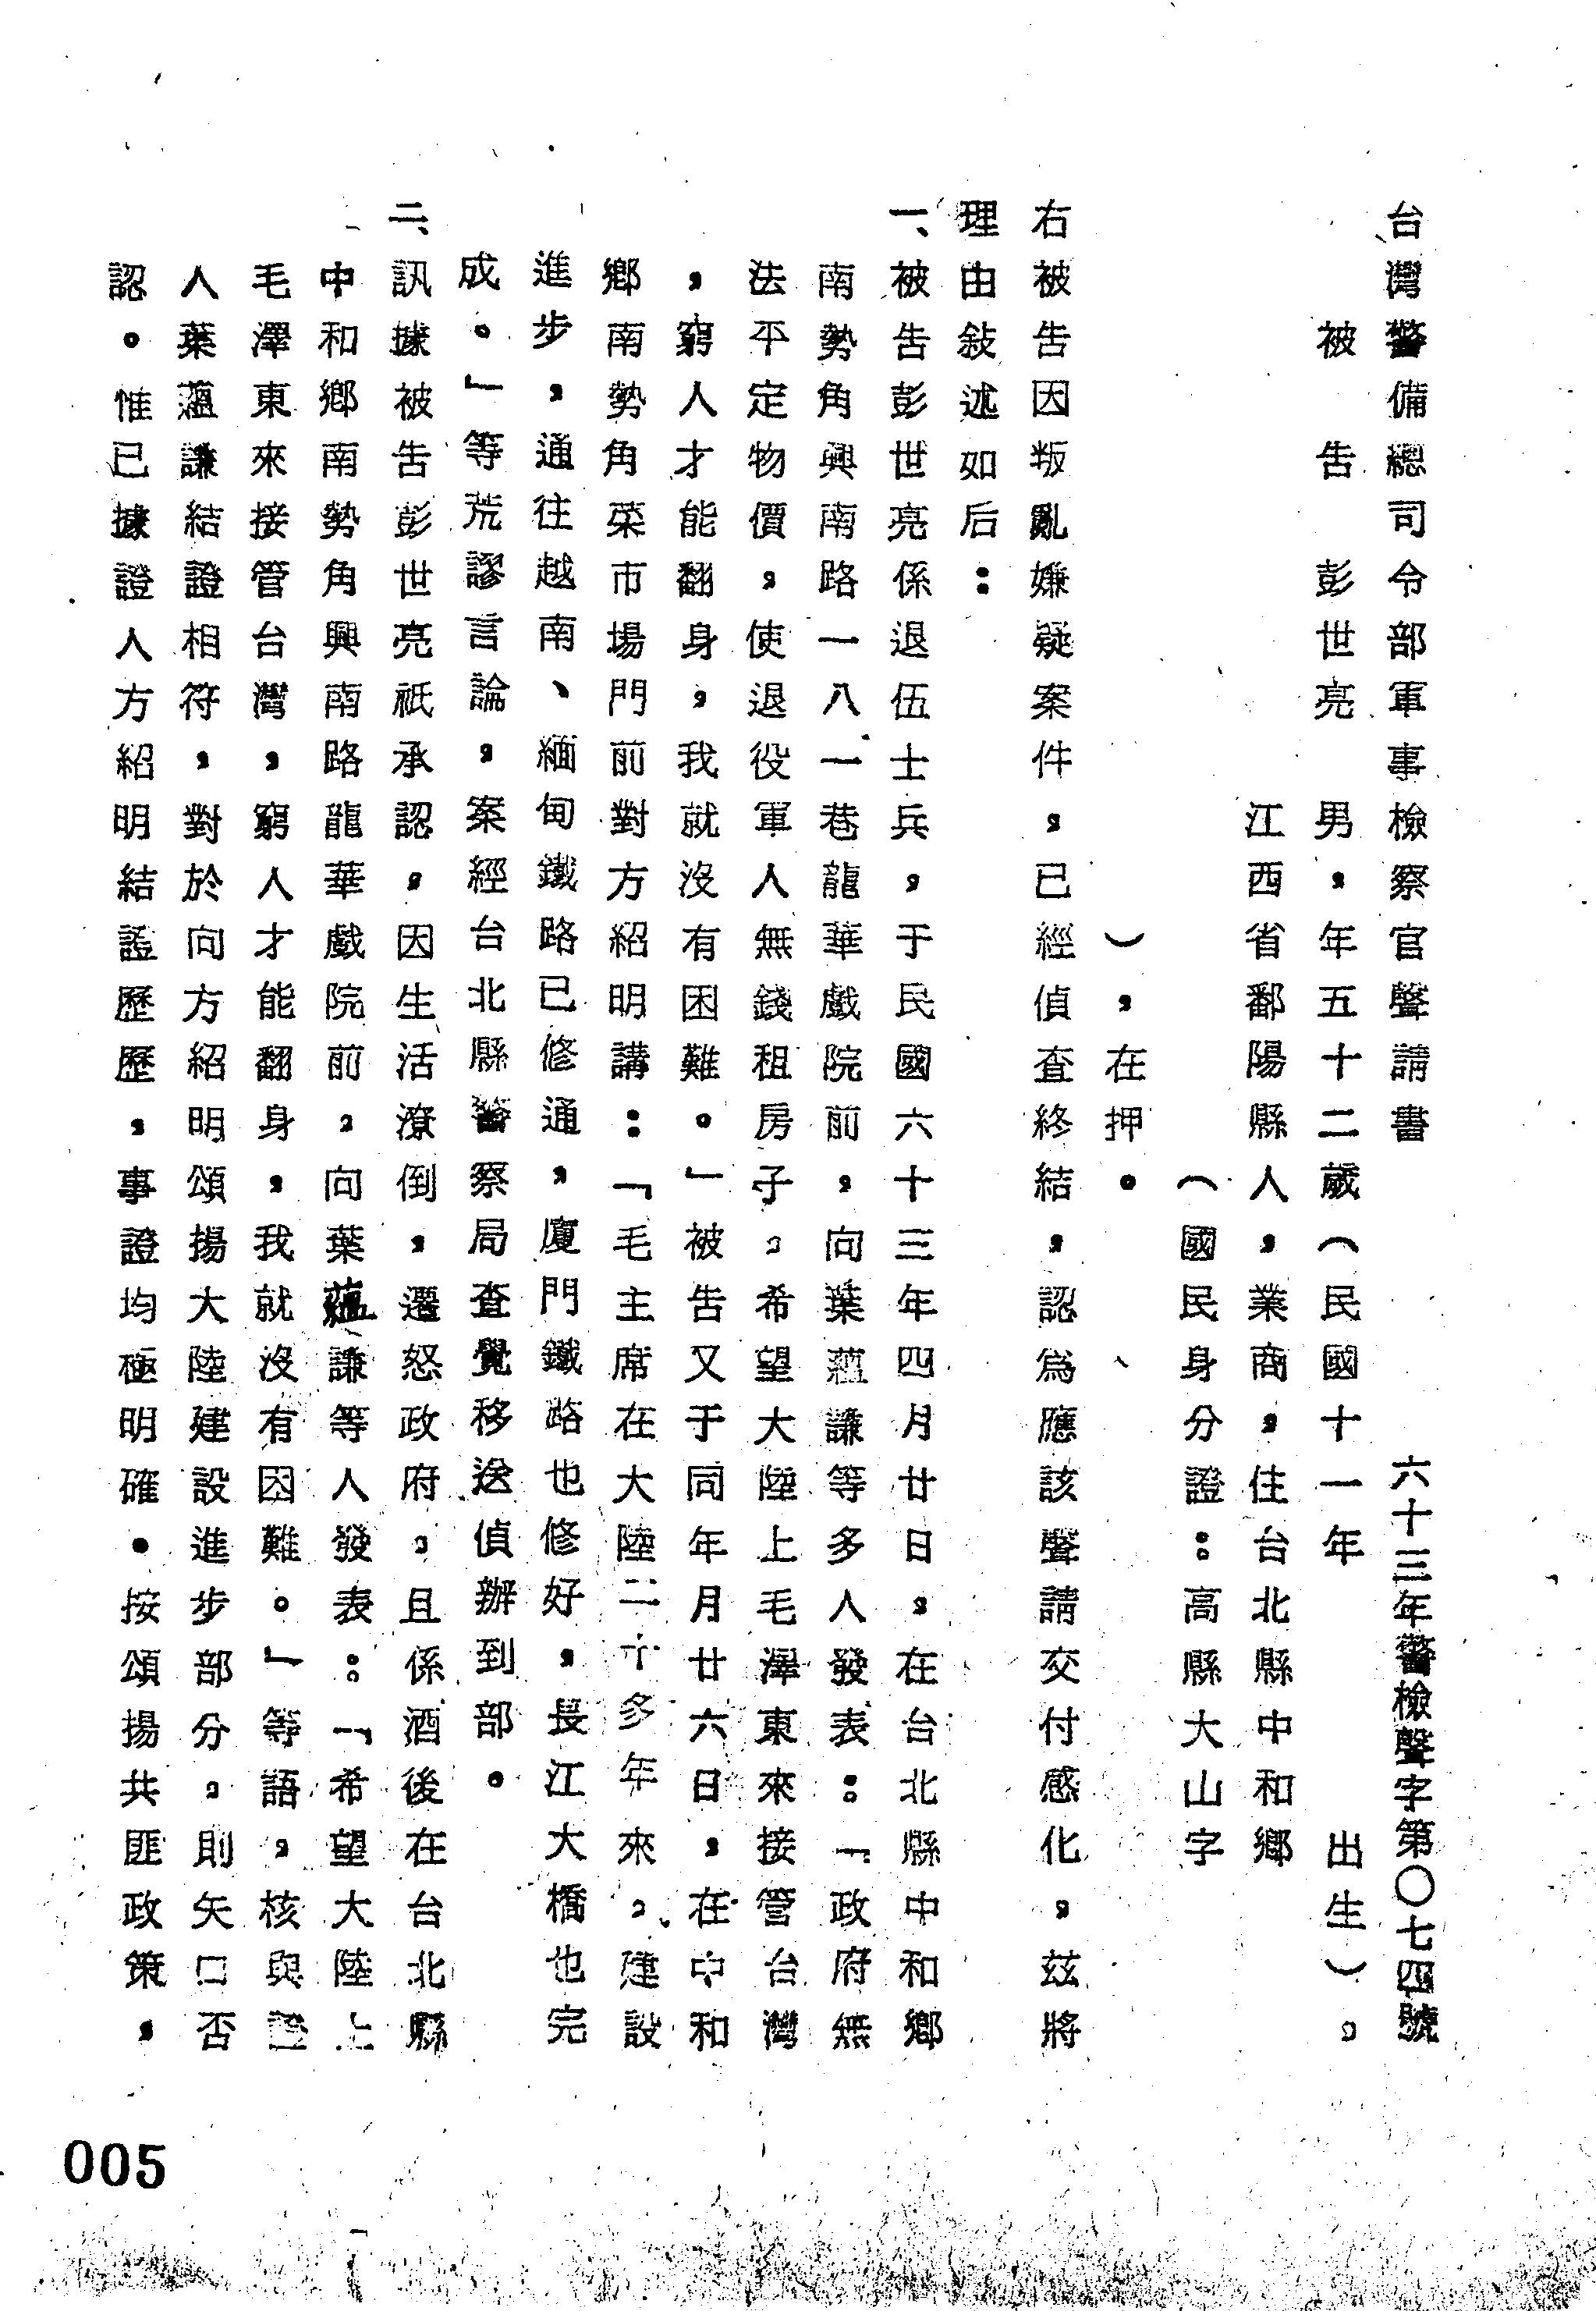 台灣警備總司令部軍事檢察官聲請書
六十三年警檢聲字第〇七四號
被告 彭世亮 男，年五十二歲（民國十一年 出生）。
江西省鄱陽縣人，業商，住台北縣中和鄉
（國民身分證：高縣大山字
），在押。
右被告因叛亂嫌疑案件，已經偵查終結，認爲應該聲請交付感化，茲將
理由敍述如后：
一、被告彭世亮係退伍士兵，于民國六十三年四月廿日，在台北縣中和鄉
南勢角興南路一八一巷龍華戲院前，向葉蘊謙等多人發表：「政府無
法平定物價，使退役軍人無錢租房子。希望大陸上毛澤東來接管台灣
，窮人才能翻身，我就沒有困難。」被告又于同年月廿六日，在中和
鄉南勢角菜市場門前對方紹明講：「毛主席在大陸二十多年來，建設
進步，通往越南、緬甸鐵路已修通，廈門鐵路也修好，長江大橋也完
成。」等荒謬言論，案經台北縣警察局查覺移送偵辦到部。
二、訊據被告彭世亮祇承認，因生活潦倒，遷怒政府。且係酒後在台北縣
中和鄉南勢角興南路龍華戲院前，向葉蘊謙等人發表：「希望大陸上
毛澤東來接管台灣，窮人才能翻身，我就沒有困難。」等語，核與證
人葉蘊謙結證相符，對於向方紹明頌揚大陸建設進步部分。則矢口否
認。惟已據證人方紹明結證歷歷，事證均極明確。按頌揚共匪政策，
005